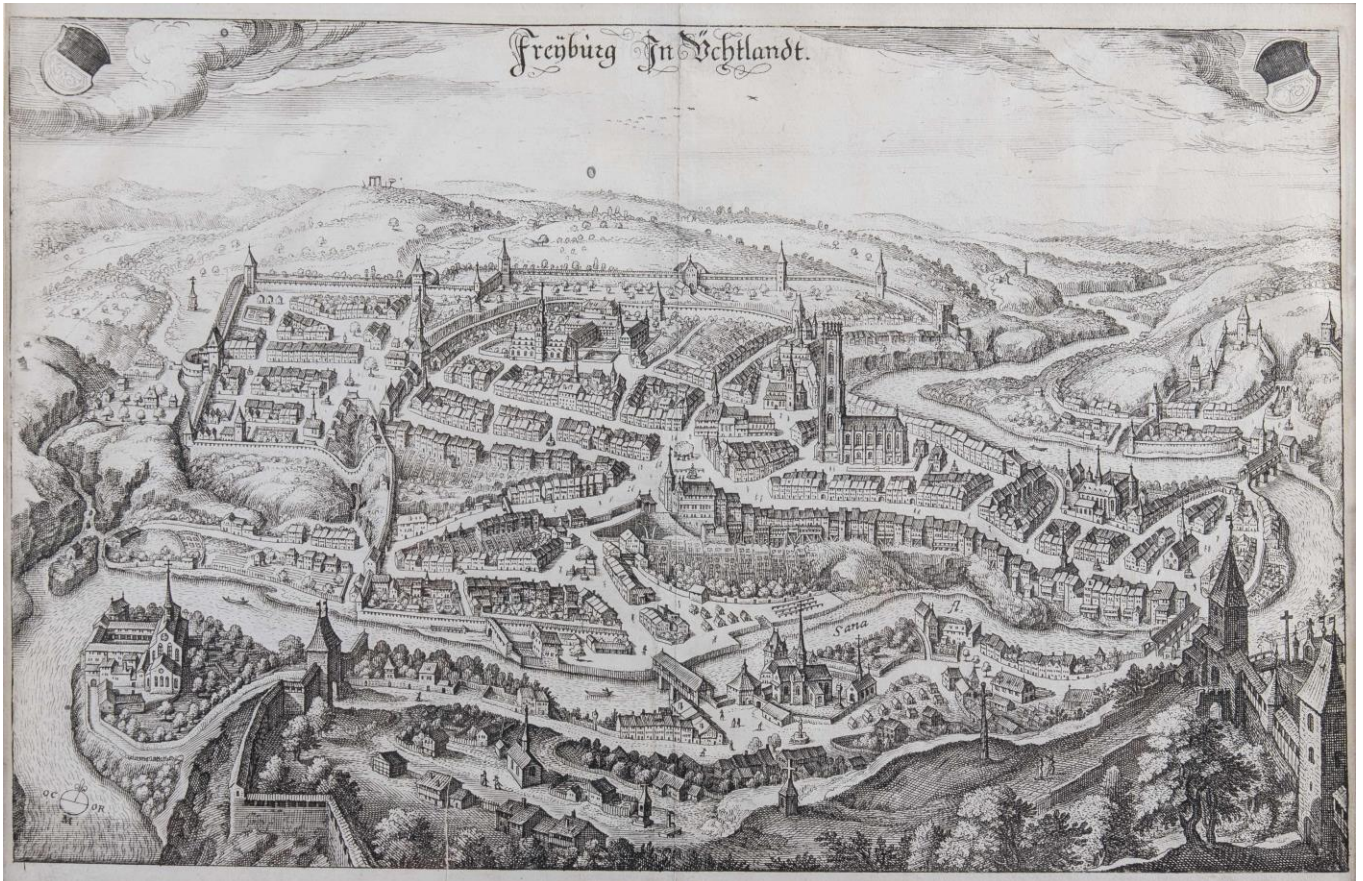 Freÿbürg In Vchtlandt.
fl.
Sana
OC
OR
M